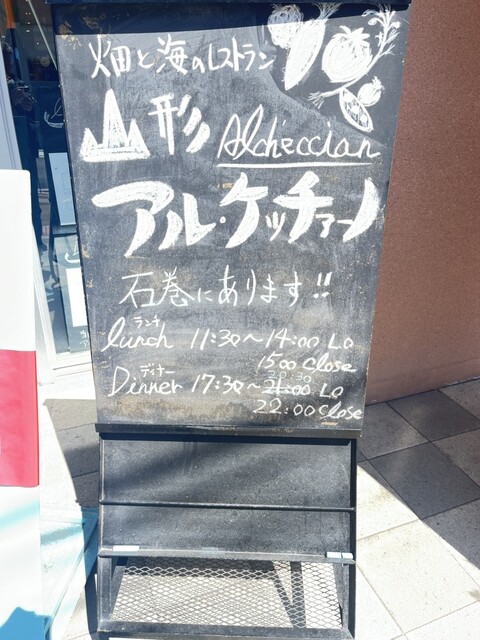 畑と海のレストラン
山形 Alcheccian
アル・ケッチァーノ
石巻にあります!!
ランチ
lunch 11:30〜14:00 LO
15:00 Close
ディナー
20:30
Dinner 17:30〜21:00 LO
22:00 Close